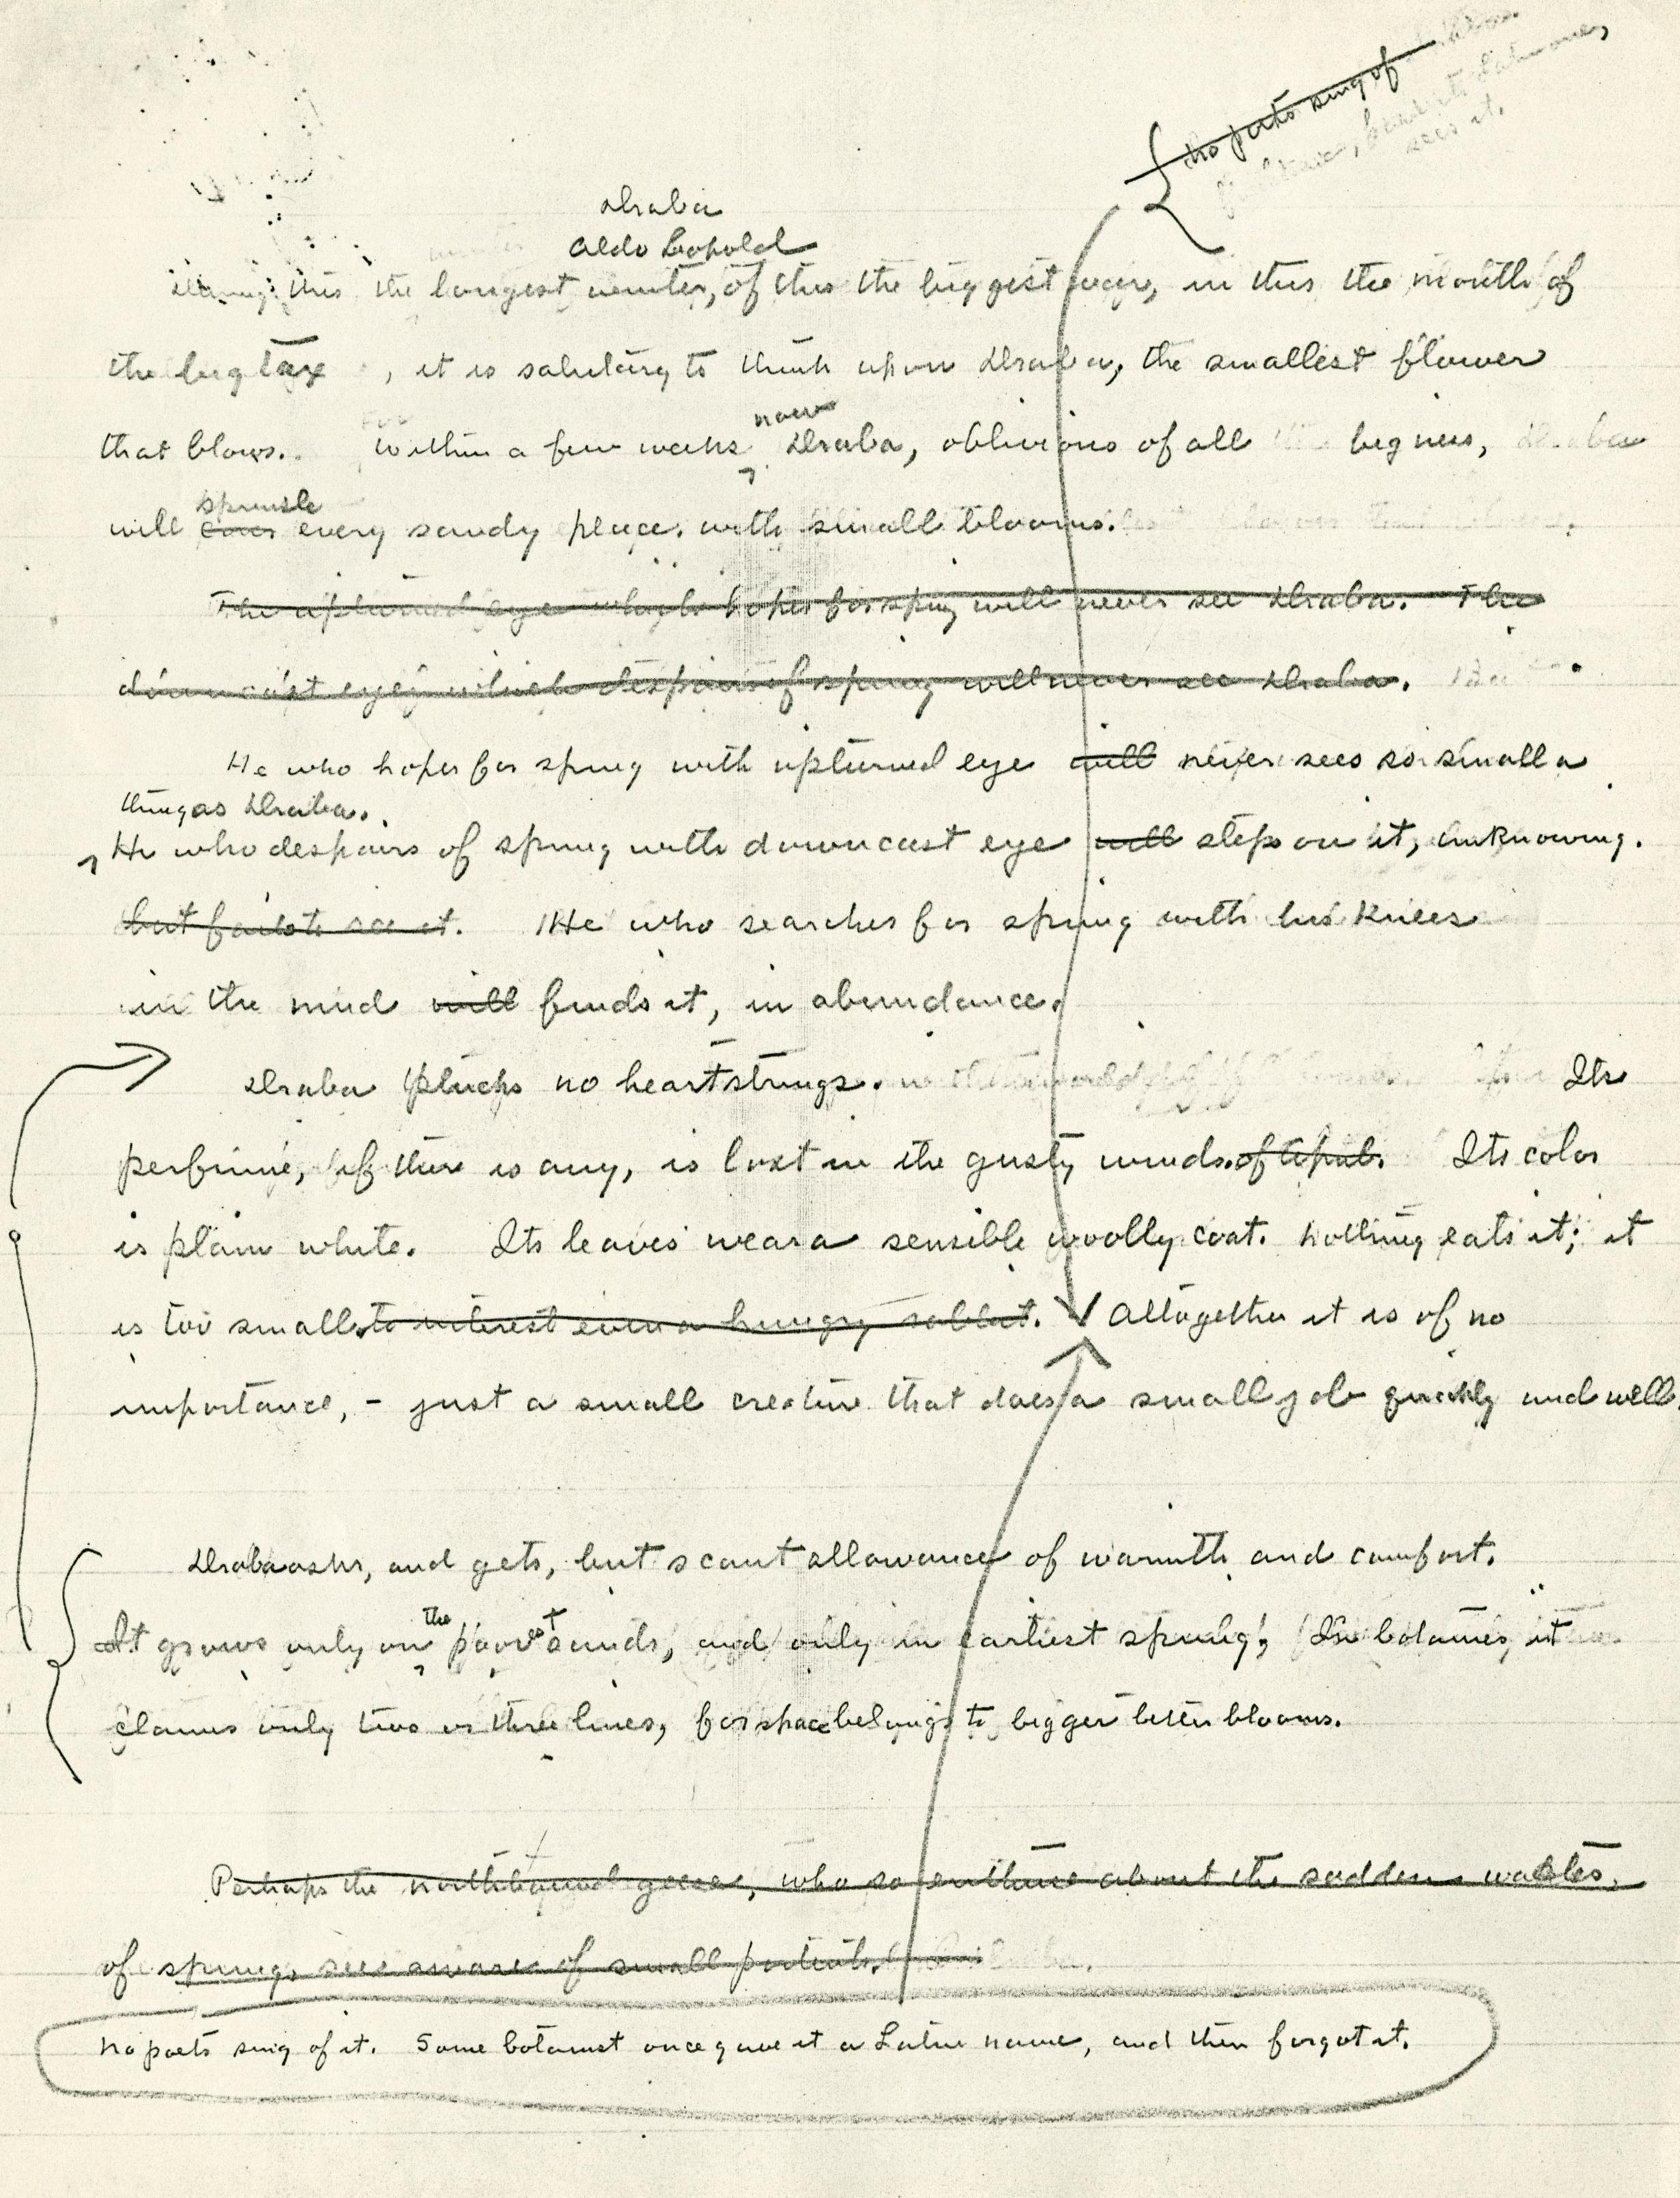 No poets sing of
sees it.
Draba
Aldo Leopold
this the longest winter, of this the biggest war, in this the month of
the big tax , it is salutary to think upon Draba, the smallest flower
now
that blows. Within a few weeks Draba, oblivious of all bigness,
sprinkle
will cover every sandy place with small blooms.
The upturned eye which hopes for spring will never see Draba. The
downcast eye which despairs of spring will never see Draba.
He who hopes for spring with upturned eye will never sees so small a
thing as Draba.
He who despairs of spring with downcast eye will steps on it, unknowing.
but fails to see it. He who searches for spring with his knees
in the mud will finds it, in abundance.
Draba plucks no heartstrings. Its
perfume, if there is any, is lost in the gusty winds of April. Its color
is plain white. Its leaves wear a sensible woolly coat. Nothing eats it; it
is too small to interest even a hungry rabbit. Altogether it is of no
importance, - just a small creature that does a small job quickly and well.
Draba asks, and gets, but scant allowance of warmth and comfort.
the
It grows only on poorest sands, and only in earliest spring; In botanies, it
claims only two or three lines, for space belongs to bigger better blooms.
Perhaps the northbound geese, who so enthuse about the sudden
of spring, see small portents.
No poets sing of it. Some botanist once gave it a Latin name, and then forgot it.